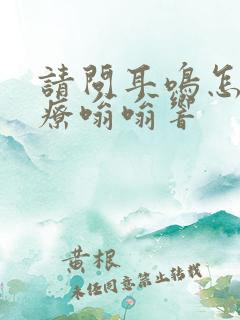 請問耳鳴怎
療嗡嗡響
黄根
未经同意禁止转载